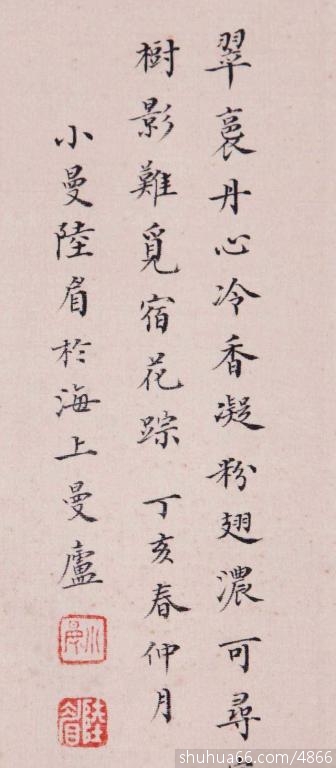 翠裛丹心冷香凝粉翅濃可尋
樹影難覓宿花踪 丁亥春仲月
小曼陸眉於海上曼廬
小曼
陸眉
shuhua66.com/4866